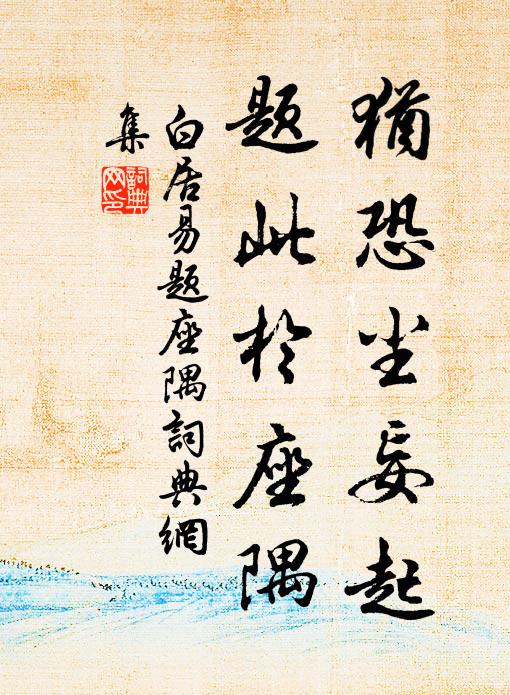 猶恐尘妄起
題此於座隅
白居易題座隅詞典網
集
詞典
网印